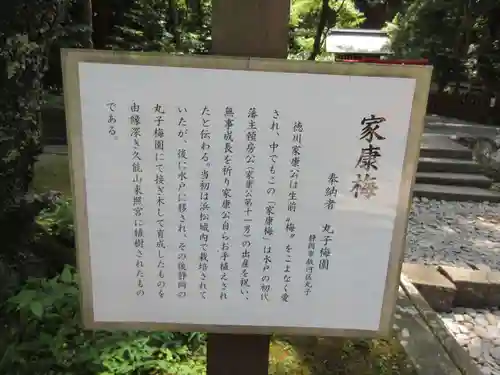 家康梅
奉納者　丸子梅園
静岡市駿河区丸子
徳川家康公は生前〝梅〟をこよなく愛
され、中でもこの「家康梅」は水戸の初代
藩主頼房公（家康公第十一男）の出産を祝い、
無事成長を祈り家康公自らお手植された
たと伝わる。当初は浜松城内で栽培されて
いたが、後に水戸に移され、その後静岡の
丸子梅園にて接ぎ木して育成したものを
由縁深き久能山東照宮に植樹されたもの
である。